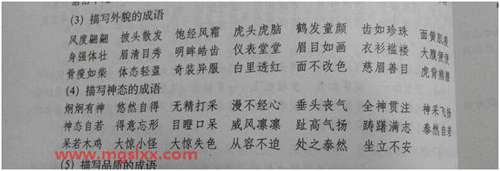 (3) 描写外貌的成语
风度翩翩 披头散发 饱经风霜 虎头虎脑 鹤发童颜 齿如珍珠 面黄肌瘦
身强体壮 眉清目秀 明眸皓齿 仪表堂堂 眉目如画 衣衫褴褛 大腹便便
骨瘦如柴 体态轻盈 奇装异服 白里透红 面不改色 慈眉善目 虎背熊腰
(4) 描写神态的成语
炯炯有神 悠然自得 无精打采 漫不经心 垂头丧气 全神贯注 神采飞扬
神态自若 得意忘形 目瞪口呆 威风凛凛 趾高气扬 踌躇满志 泰然自若
呆若木鸡 大惊小怪 大惊失色 从容不迫 处之泰然 坐立不安
www.mgslxx.com
(5) 描写品质的成语